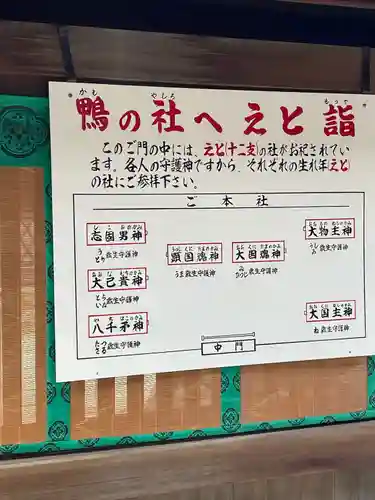 鴨の社へえと詣
かも
やしろ
もうで
このご門の中には、えと(十二支)の社がお祀されてい
ます。各人の守護神ですから、それぞれの生れ年えと
の社にご参拝下さい。
ご本社
志固男神
うとり歳生守護神
大己貴神
とらいぬ歳生守護神
八千矛神
たつさる歳生守護神
顕国魂神
うつしくにたまのかみ
うま歳生守護神
大国魂神
おおくにたまのかみ
みひつじ歳生守護神
大物主神
うしゐ歳生守護神
大国主神
ね歳生守護神
中門